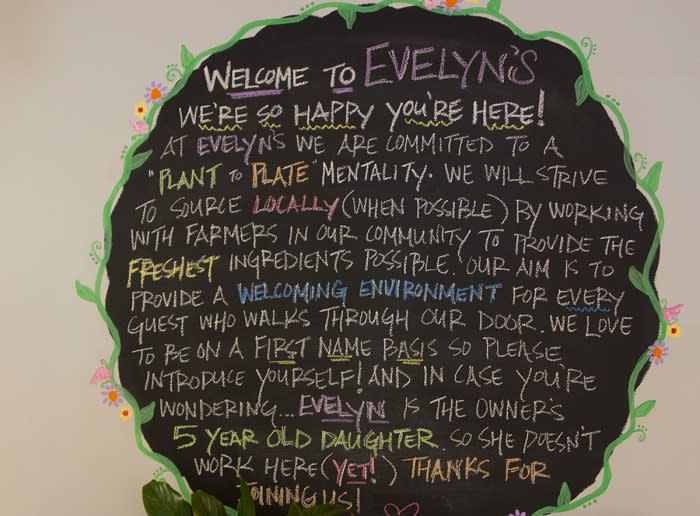 WELCOME TO EVELYN'S
WE'RE SO HAPPY YOU'RE HERE!
AT EVELYN'S WE ARE COMMITTED TO A
"PLANT to PLATE" MENTALITY. WE WILL STRIVE
TO SOURCE LOCALLY (WHEN POSSIBLE) BY WORKING
WITH FARMERS IN OUR COMMUNITY TO PROVIDE THE
FRESHEST INGREDIENTS POSSIBLE. OUR AIM IS TO
PROVIDE A WELCOMING ENVIRONMENT FOR EVERY
GUEST WHO WALKS THROUGH OUR DOOR. WE LOVE
TO BE ON A FIRST NAME BASIS SO PLEASE
INTRODUCE YOURSELF! AND IN CASE YOU'RE
WONDERING... EVELYN IS THE OWNER'S
5 YEAR OLD DAUGHTER. SO SHE DOESN'T
WORK HERE (YET!) THANKS FOR
JOINING US!